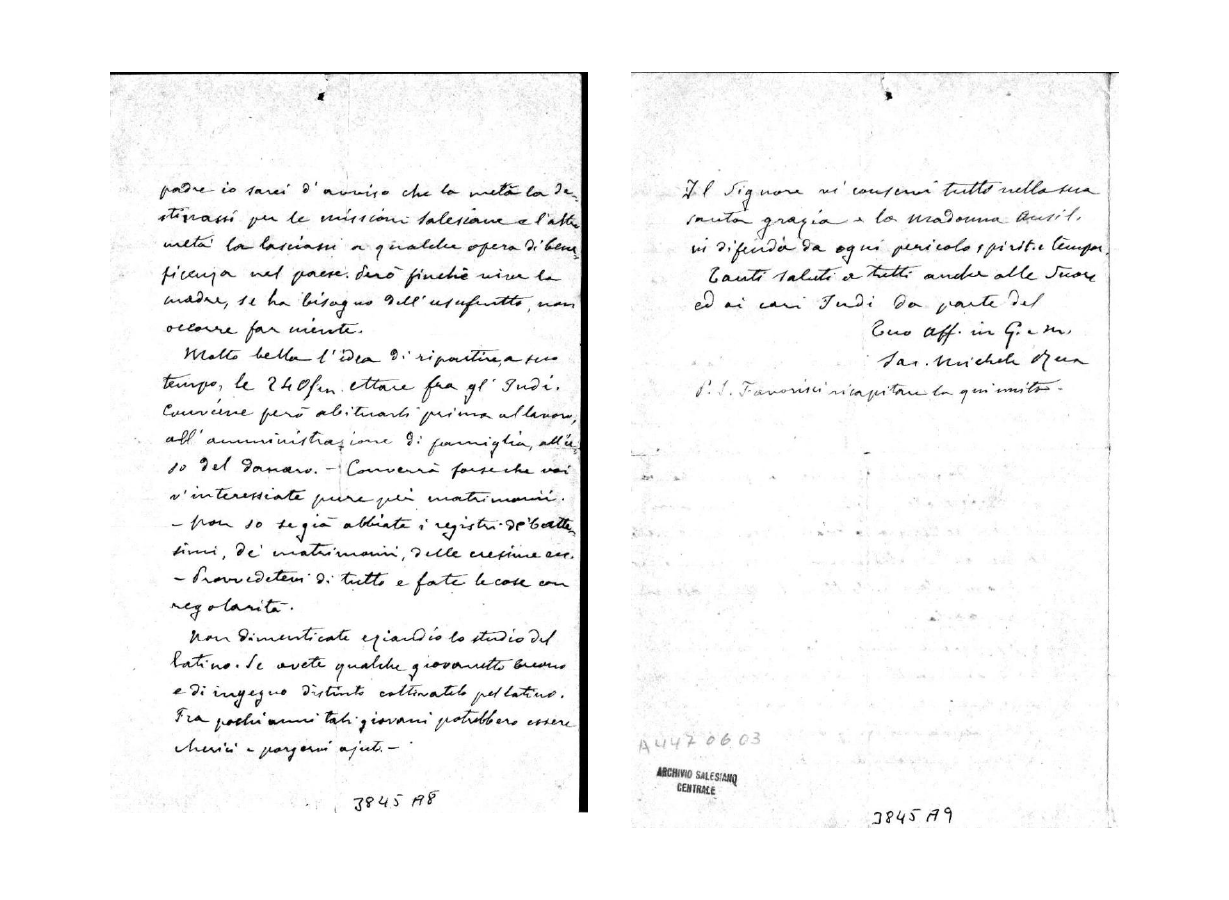 padre io sarei d'avviso che la metà la de-
stinassi per le missioni Salesiane e l'altra
metà la lasciassi a qualche opera di bene-
ficenza nel paese. Però finchè vive la
madre, se ha bisogno dell'usufrutto, non
occorre far niente.
Molto bella l'idea di ripartire, a suo
tempo, le 240 ettare fra gl'Indi.
Conviene però abituarli prima al lavoro,
all'amministrazione di famiglia, all'u-
so del danaro. - Converrà forse che voi
v'interessiate pure pei matrimonii.
- Non so se già abbiate i registri de' batte-
simi, de' matrimonii, delle cresime ecc.
- Provvedetevi di tutto e fate le cose con
regolarità.
Non dimenticate eziandio lo studio del
latino. Se avete qualche giovanetto buono
e di ingegno distinto coltivatelo pel latino.
Fra pochi anni tali giovani potrebbero essere
cherici e porgervi ajuti. -
3845 A8
Il Signore vi conservi tutti nella sua
santa grazia e la Madonna Ausil.
vi difenda da ogni pericolo spirit. e tempor.
Tanti saluti a tutti anche alle Suore
ed ai cari Indi da parte del
Tuo aff. in G. e M.
Sac. Michele Rua
P. S. Favorisci ricapitare la qui unita -
A4470603
ARCHIVIO SALESIANO
CENTRALE
3845 A9